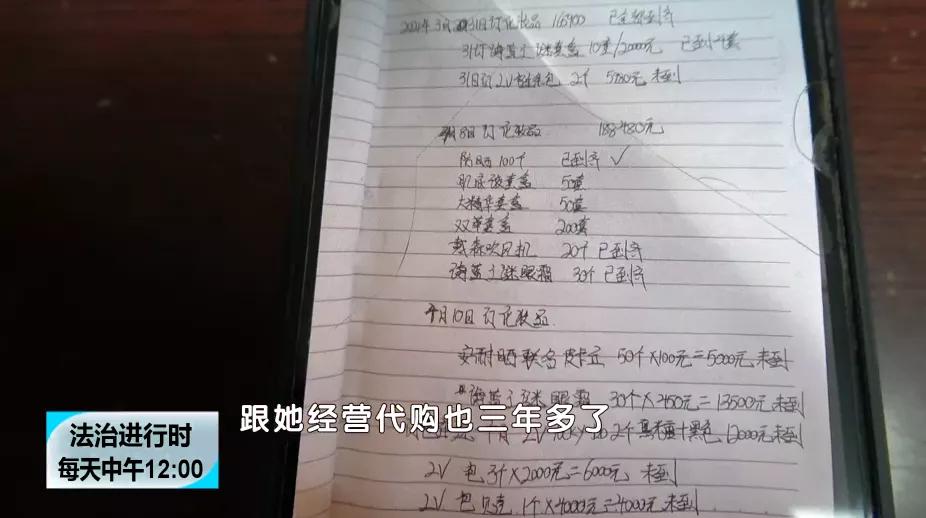 2021年3月31日订化妆品 169400 已全部到齐
31订海蓝之谜套盒 10套/2000元 已到4套
31日订LV 包 2个 5780元 未到
4月8日订化妆品 188480元
防晒100个 已到齐 ✓
肌底液套盒 50套
大精华套盒 50套
双萃套盒 200套
戴森吹风机 20个 已到齐
海蓝之谜眼霜 30个 已到齐
4月10日订化妆品
安耐晒联名皮卡丘 50个×100元=5000元 未到
海蓝之谜眼霜 30个×450元=13500元 未到
2个 黑色 12000元 未到
LV 包 3个×2000元=6000元 未到
LV 包 贝壳 1个×4000元=4000元 未到
跟她经营代购也三年多了
法治进行时
每天中午12:00